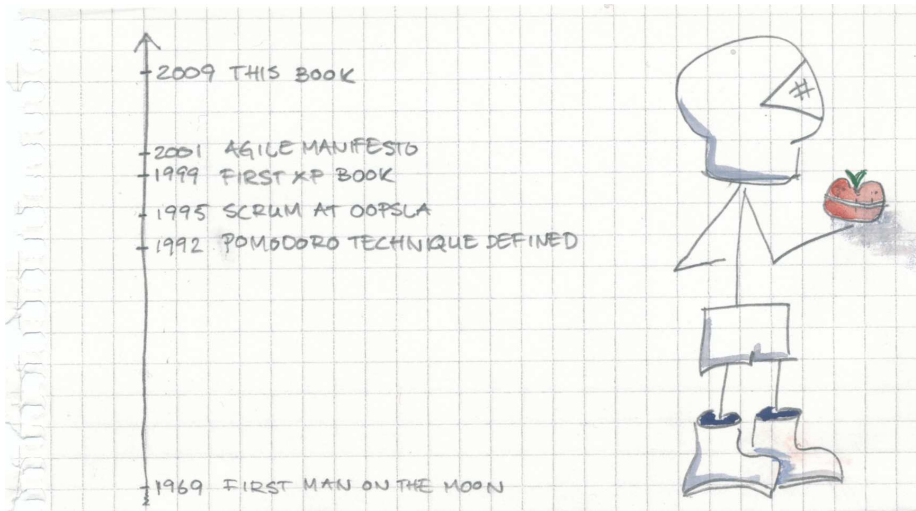 2009 THIS BOOK
#
2001 AGILE MANIFESTO
1999 FIRST XP BOOK
1995 SCRUM AT OOPSLA
1992 POMODORO TECHNIQUE DEFINED
1969 FIRST MAN ON THE MOON